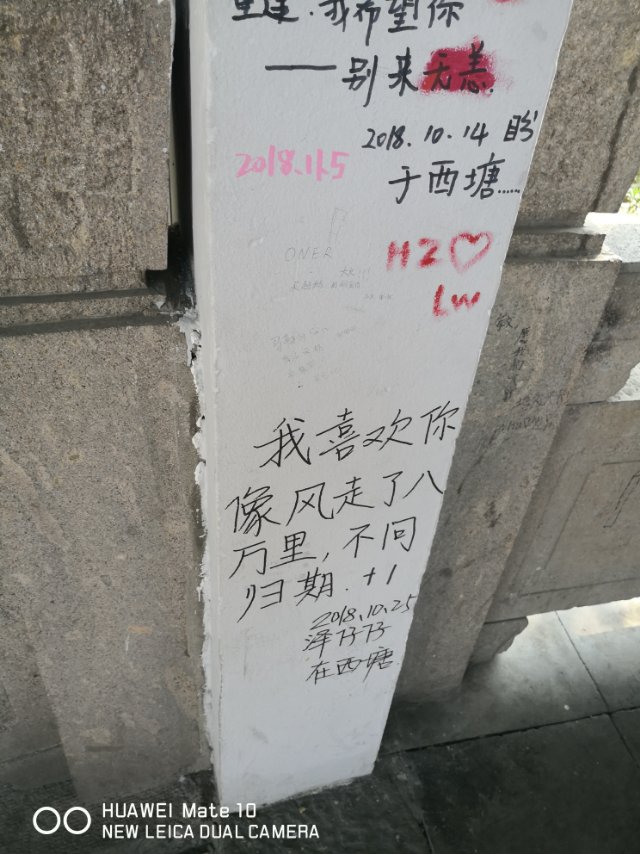 重逢.我希望你
——别来无恙.
2018.10.14 盼
于西塘......
2018.11.5
HZ♡
Lw
ONER
我喜欢你
像风走了八
万里,不问
归期.+1
2018.10.25
泽仔仔
在西塘
HUAWEI Mate 10
NEW LEICA DUAL CAMERA